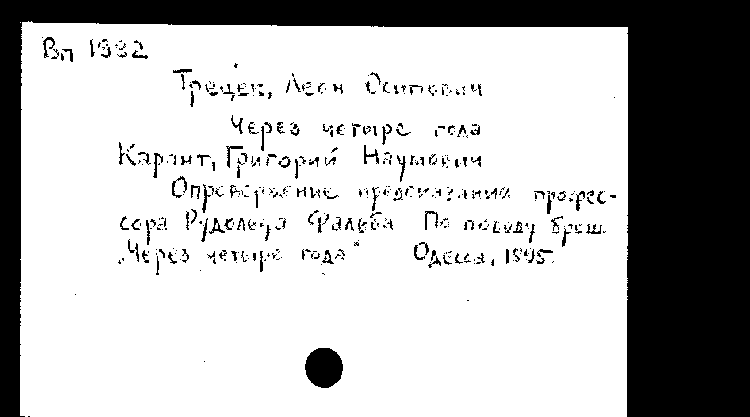 Вп 1992
Трецек, Леон Осипович
Через четыре года
Карант, Григорий Наумович
Опровержение предсказания профес-
сора Рудольфа Фальба По поводу брош.
„Через четыре года“ Одесса, 1895.